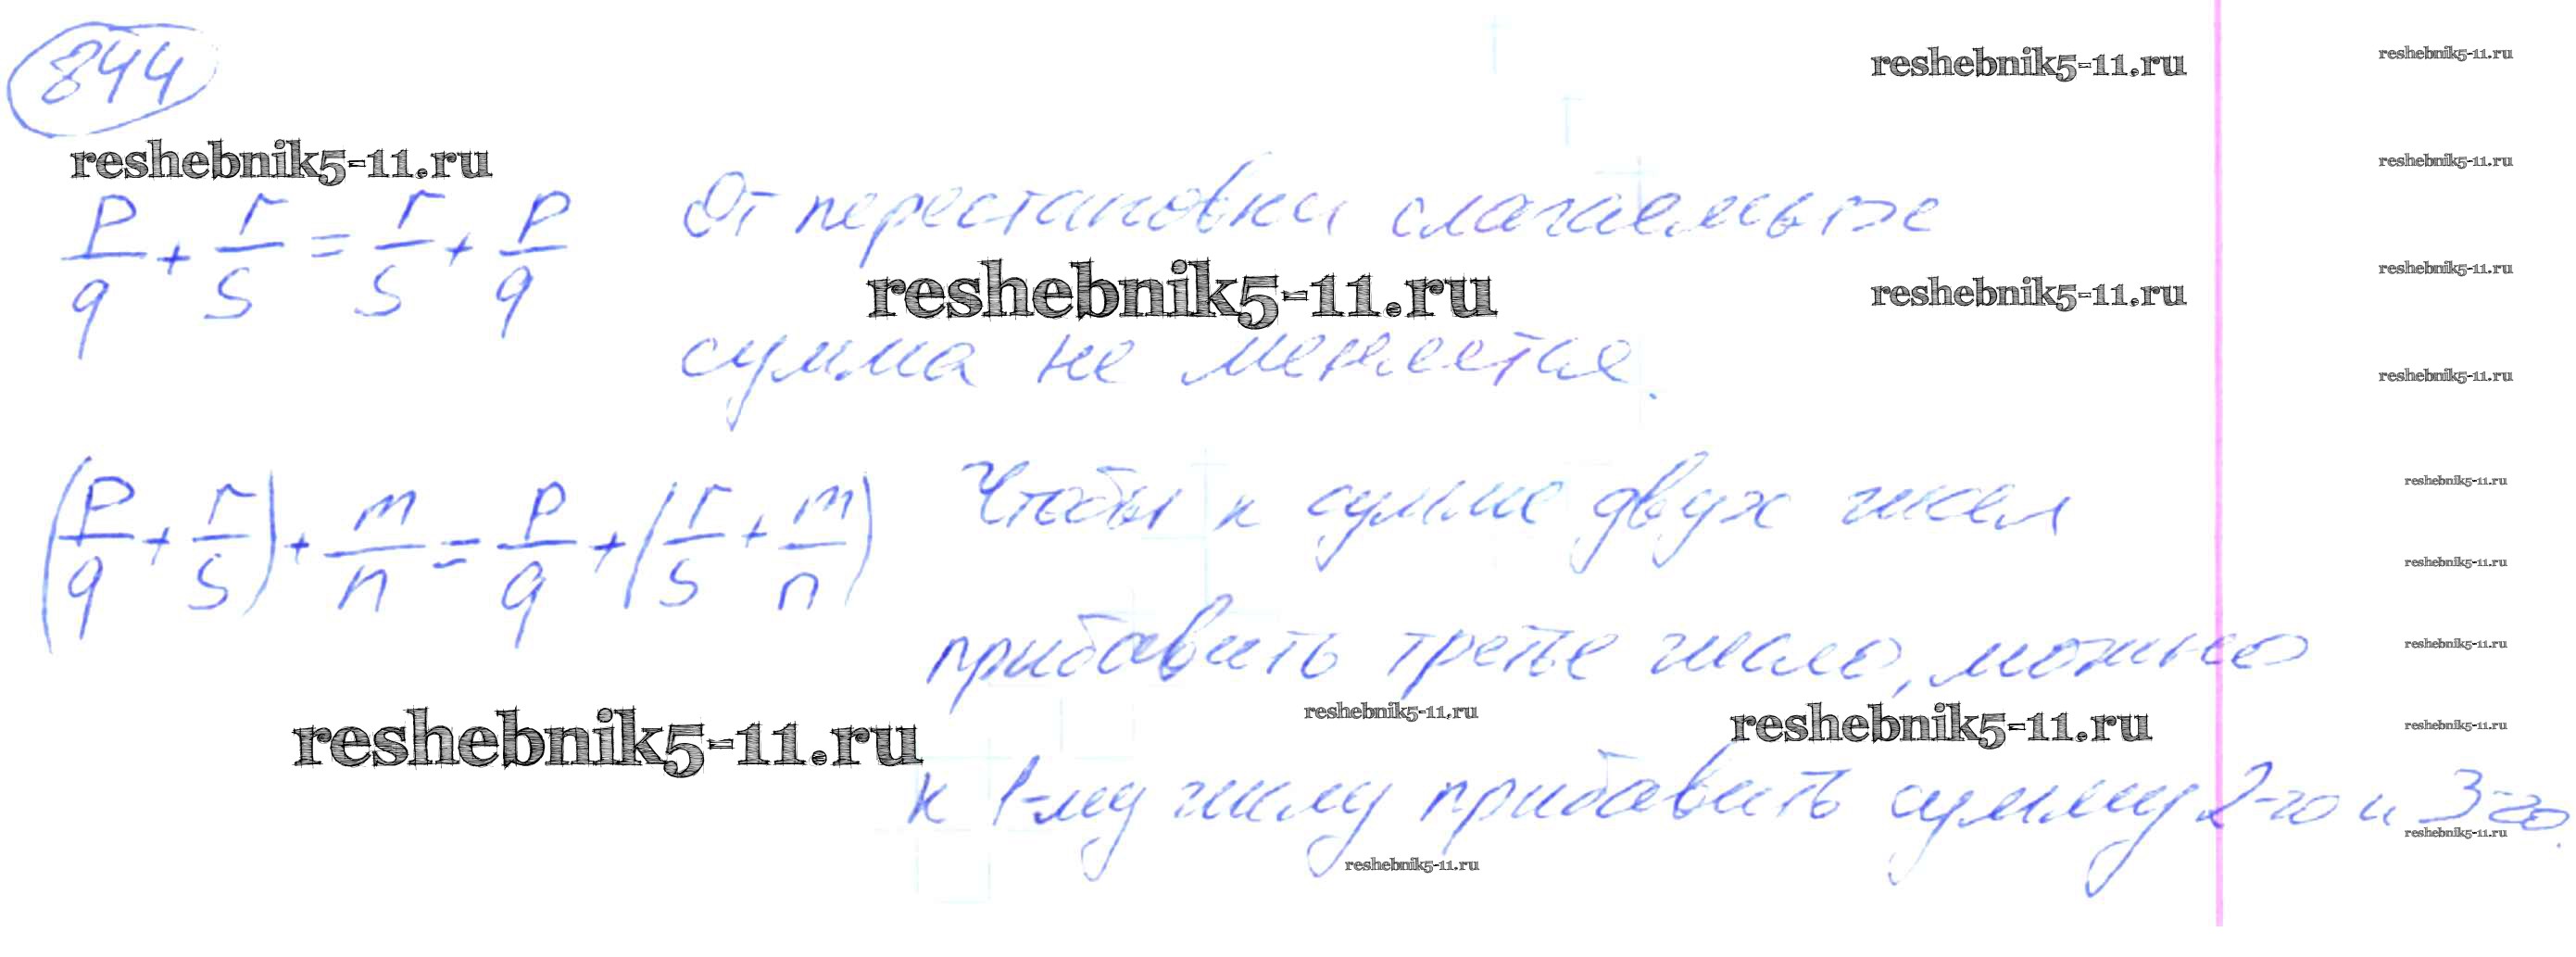 844
reshebnik5-11.ru
reshebnik5-11.ru
reshebnik5-11.ru
reshebnik5-11.ru
p/q + r/s = r/s + p/q От перестановки слагаемых
reshebnik5-11.ru
reshebnik5-11.ru
reshebnik5-11.ru
сумма не меняется.
reshebnik5-11.ru
(p/q + r/s) + m/n = p/q + (r/s + m/n) Чтобы к сумме двух чисел
reshebnik5-11.ru
reshebnik5-11.ru
прибавить третье число, можно
reshebnik5-11.ru
reshebnik5-11.ru
reshebnik5-11.ru
reshebnik5-11.ru
reshebnik5-11.ru
к 1-му числу прибавить сумму 2-го и 3-го.
reshebnik5-11.ru
reshebnik5-11.ru